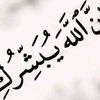 نَّ ٱللَّهَ يُبَشِّرُكِ